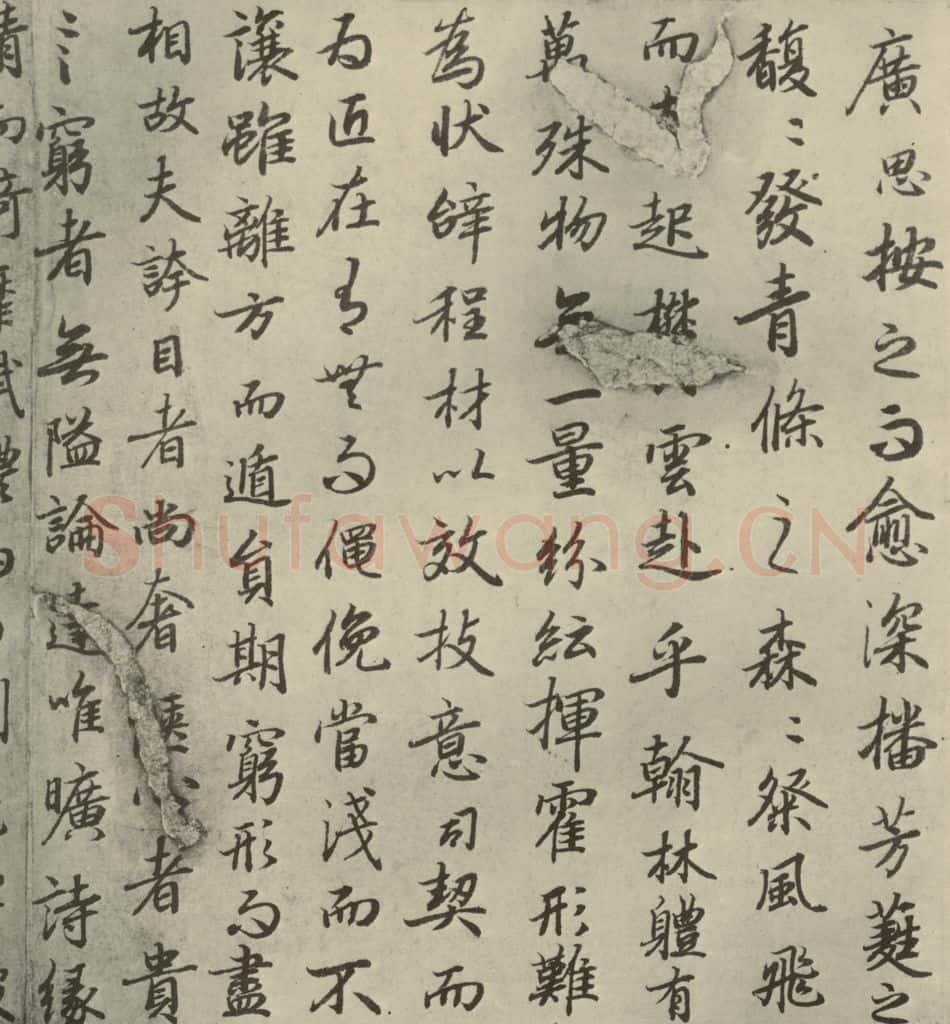 廣思按之而愈深播芳蕤之
馥〻發青條之森〻粲風飛
而起雲赴乎翰林軆有
萬殊物無一量紛紜揮霍形難
為狀辭程材以效技意司契而
為匠在有無而僶俛當淺而不
讓雖離方而遁員期窮形而盡
相故夫誇目者尚奢愜心者貴
〻窮者無隘論達唯曠詩緣
情而綺靡賦
Shufawang.CN